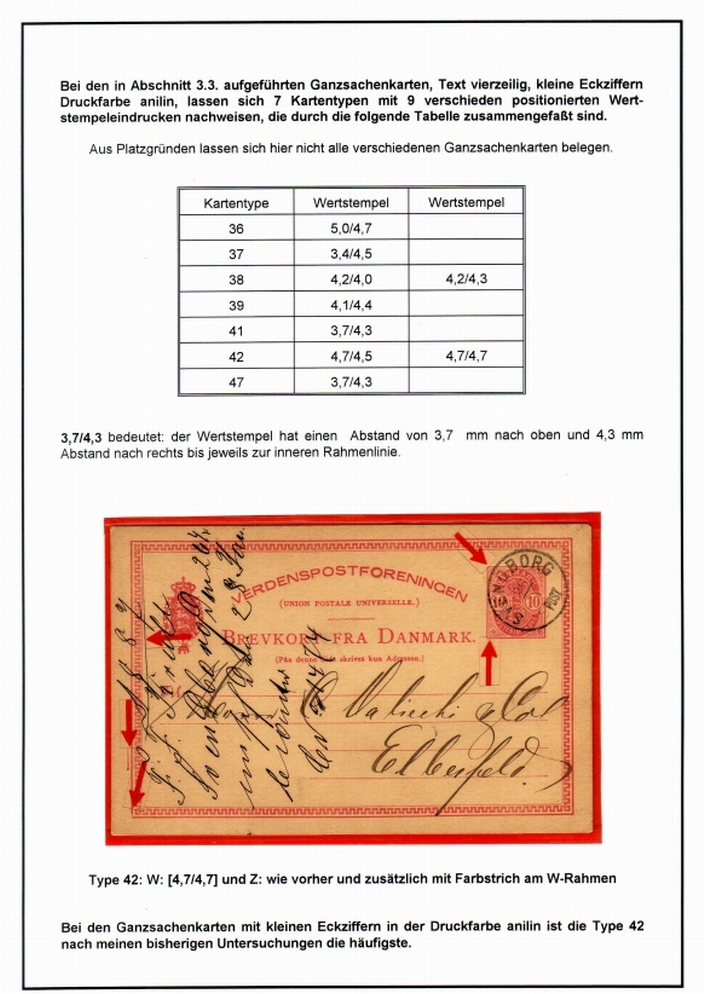 Bei den in Abschnitt 3.3. aufgeführten Ganzsachenkarten, Text vierzeilig, kleine Eckziffern
Druckfarbe anilin, lassen sich 7 Kartentypen mit 9 verschieden positionierten Wert-
stempeleindrucken nachweisen, die durch die folgende Tabelle zusammengefaßt sind.
Aus Platzgründen lassen sich hier nicht alle verschiedenen Ganzsachenkarten belegen.
Kartentype Wertstempel Wertstempel
36 5,0/4,7
37 3,4/4,5
38 4,2/4,0 4,2/4,3
39 4,1/4,4
41 3,7/4,3
42 4,7/4,5 4,7/4,7
47 3,7/4,3
3,7/4,3 bedeutet: der Wertstempel hat einen Abstand von 3,7 mm nach oben und 4,3 mm
Abstand nach rechts bis jeweils zur inneren Rahmenlinie.
VERDENSPOSTFORENINGEN
(UNION POSTALE UNIVERSELLE.)
BREVKORT FRA DANMARK.
(Paa denne Side skrives kun Adressen.)
Til
SVENDBORG
POST
10 10
Elberfeld
Type 42: W: [4,7/4,7] und Z: wie vorher und zusätzlich mit Farbstrich am W-Rahmen
Bei den Ganzsachenkarten mit kleinen Eckziffern in der Druckfarbe anilin ist die Type 42
nach meinen bisherigen Untersuchungen die häufigste.